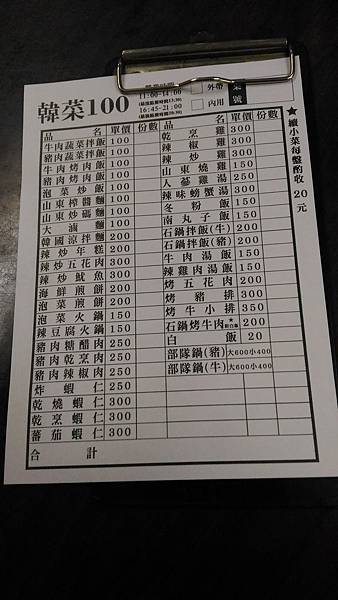 韓菜100
11:00-14:00
(最後點餐時間13:30)
16:45-21:00
(最後點餐時間20:30)
外帶
內用
桌號
★續小菜每盤酌收20元
品名 單價 份數
牛肉蔬菜拌飯 100
豬肉蔬菜拌飯 100
牛肉烤肉飯 100
豬肉烤肉飯 100
泡菜炒飯 100
山東榨醬麵 100
山東炒碼麵 100
大滷麵 100
韓國涼拌麵 200
辣炒年糕 200
辣炒五花肉 300
辣炒魷魚 300
海鮮煎餅 200
泡菜煎餅 200
泡菜火鍋 150
辣豆腐火鍋 150
豬肉糖醋肉 250
豬肉乾烹肉 250
豬肉辣椒肉 250
炸蝦仁 250
乾燒蝦仁 300
乾烹蝦仁 300
蕃茄蝦仁 300
合計
品名 單價 份數
乾烹雞 300
辣椒雞 300
辣炒雞 300
山東燒雞 150
人蔘雞湯 250
辣味螃蟹湯 300
冬粉飯 150
南丸子飯 150
石鍋拌飯(牛) 200
石鍋拌飯(豬) 200
牛肉湯飯 150
辣雞肉湯飯 150
烤五花肉 200
烤豬排 300
烤牛小排 350
石鍋烤牛肉★ 200
白飯 20
部隊鍋(豬) 大600小400
部隊鍋(牛) 大600小400